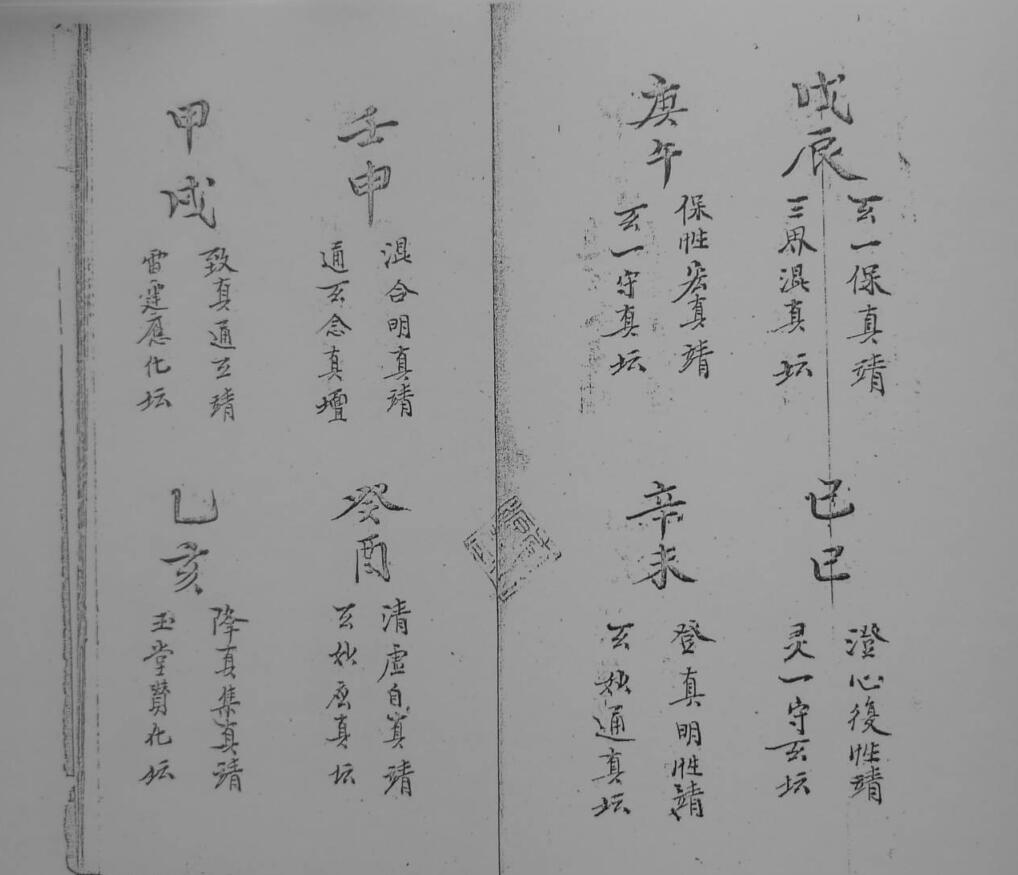 戊辰
玄一保真靖
三界混真坛
己巳
澄心復性靖
灵一守玄坛
庚午
保性宏真靖
玄一守真坛
辛未
登真明性靖
玄妙通真坛
壬申
混合明真靖
通玄念真壇
癸酉
清虚自真靖
玄妙应真坛
甲戌
致真通玄靖
雷霆應化坛
乙亥
降真集真靖
玉堂贊化坛